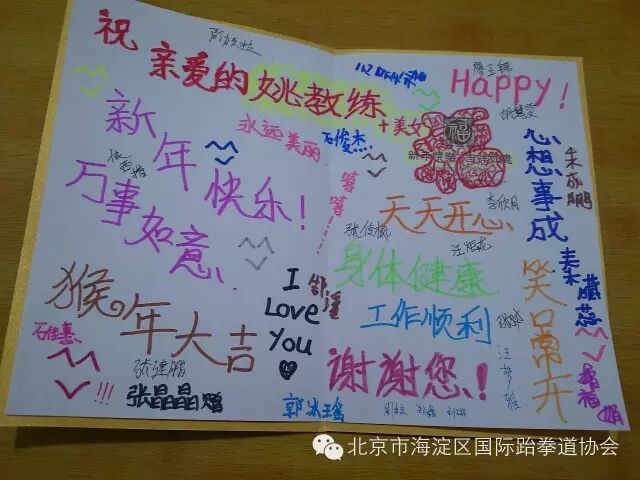 祝
亲爱的姚教练
+美女
永远美丽
石俊杰
新年快乐!
万事如意
嘻嘻
猴年大吉
I
Love
You
石佳惠
张建鹏
张晶晶赠
!!!
郭冰瑶
Happy!
福
心想事成
朱成鹏
天天开心
李欣月
张俊枫
身体健康
工作顺利
笑口常开
汪梦雅
谢谢您!
北京市海淀区国际跆拳道协会